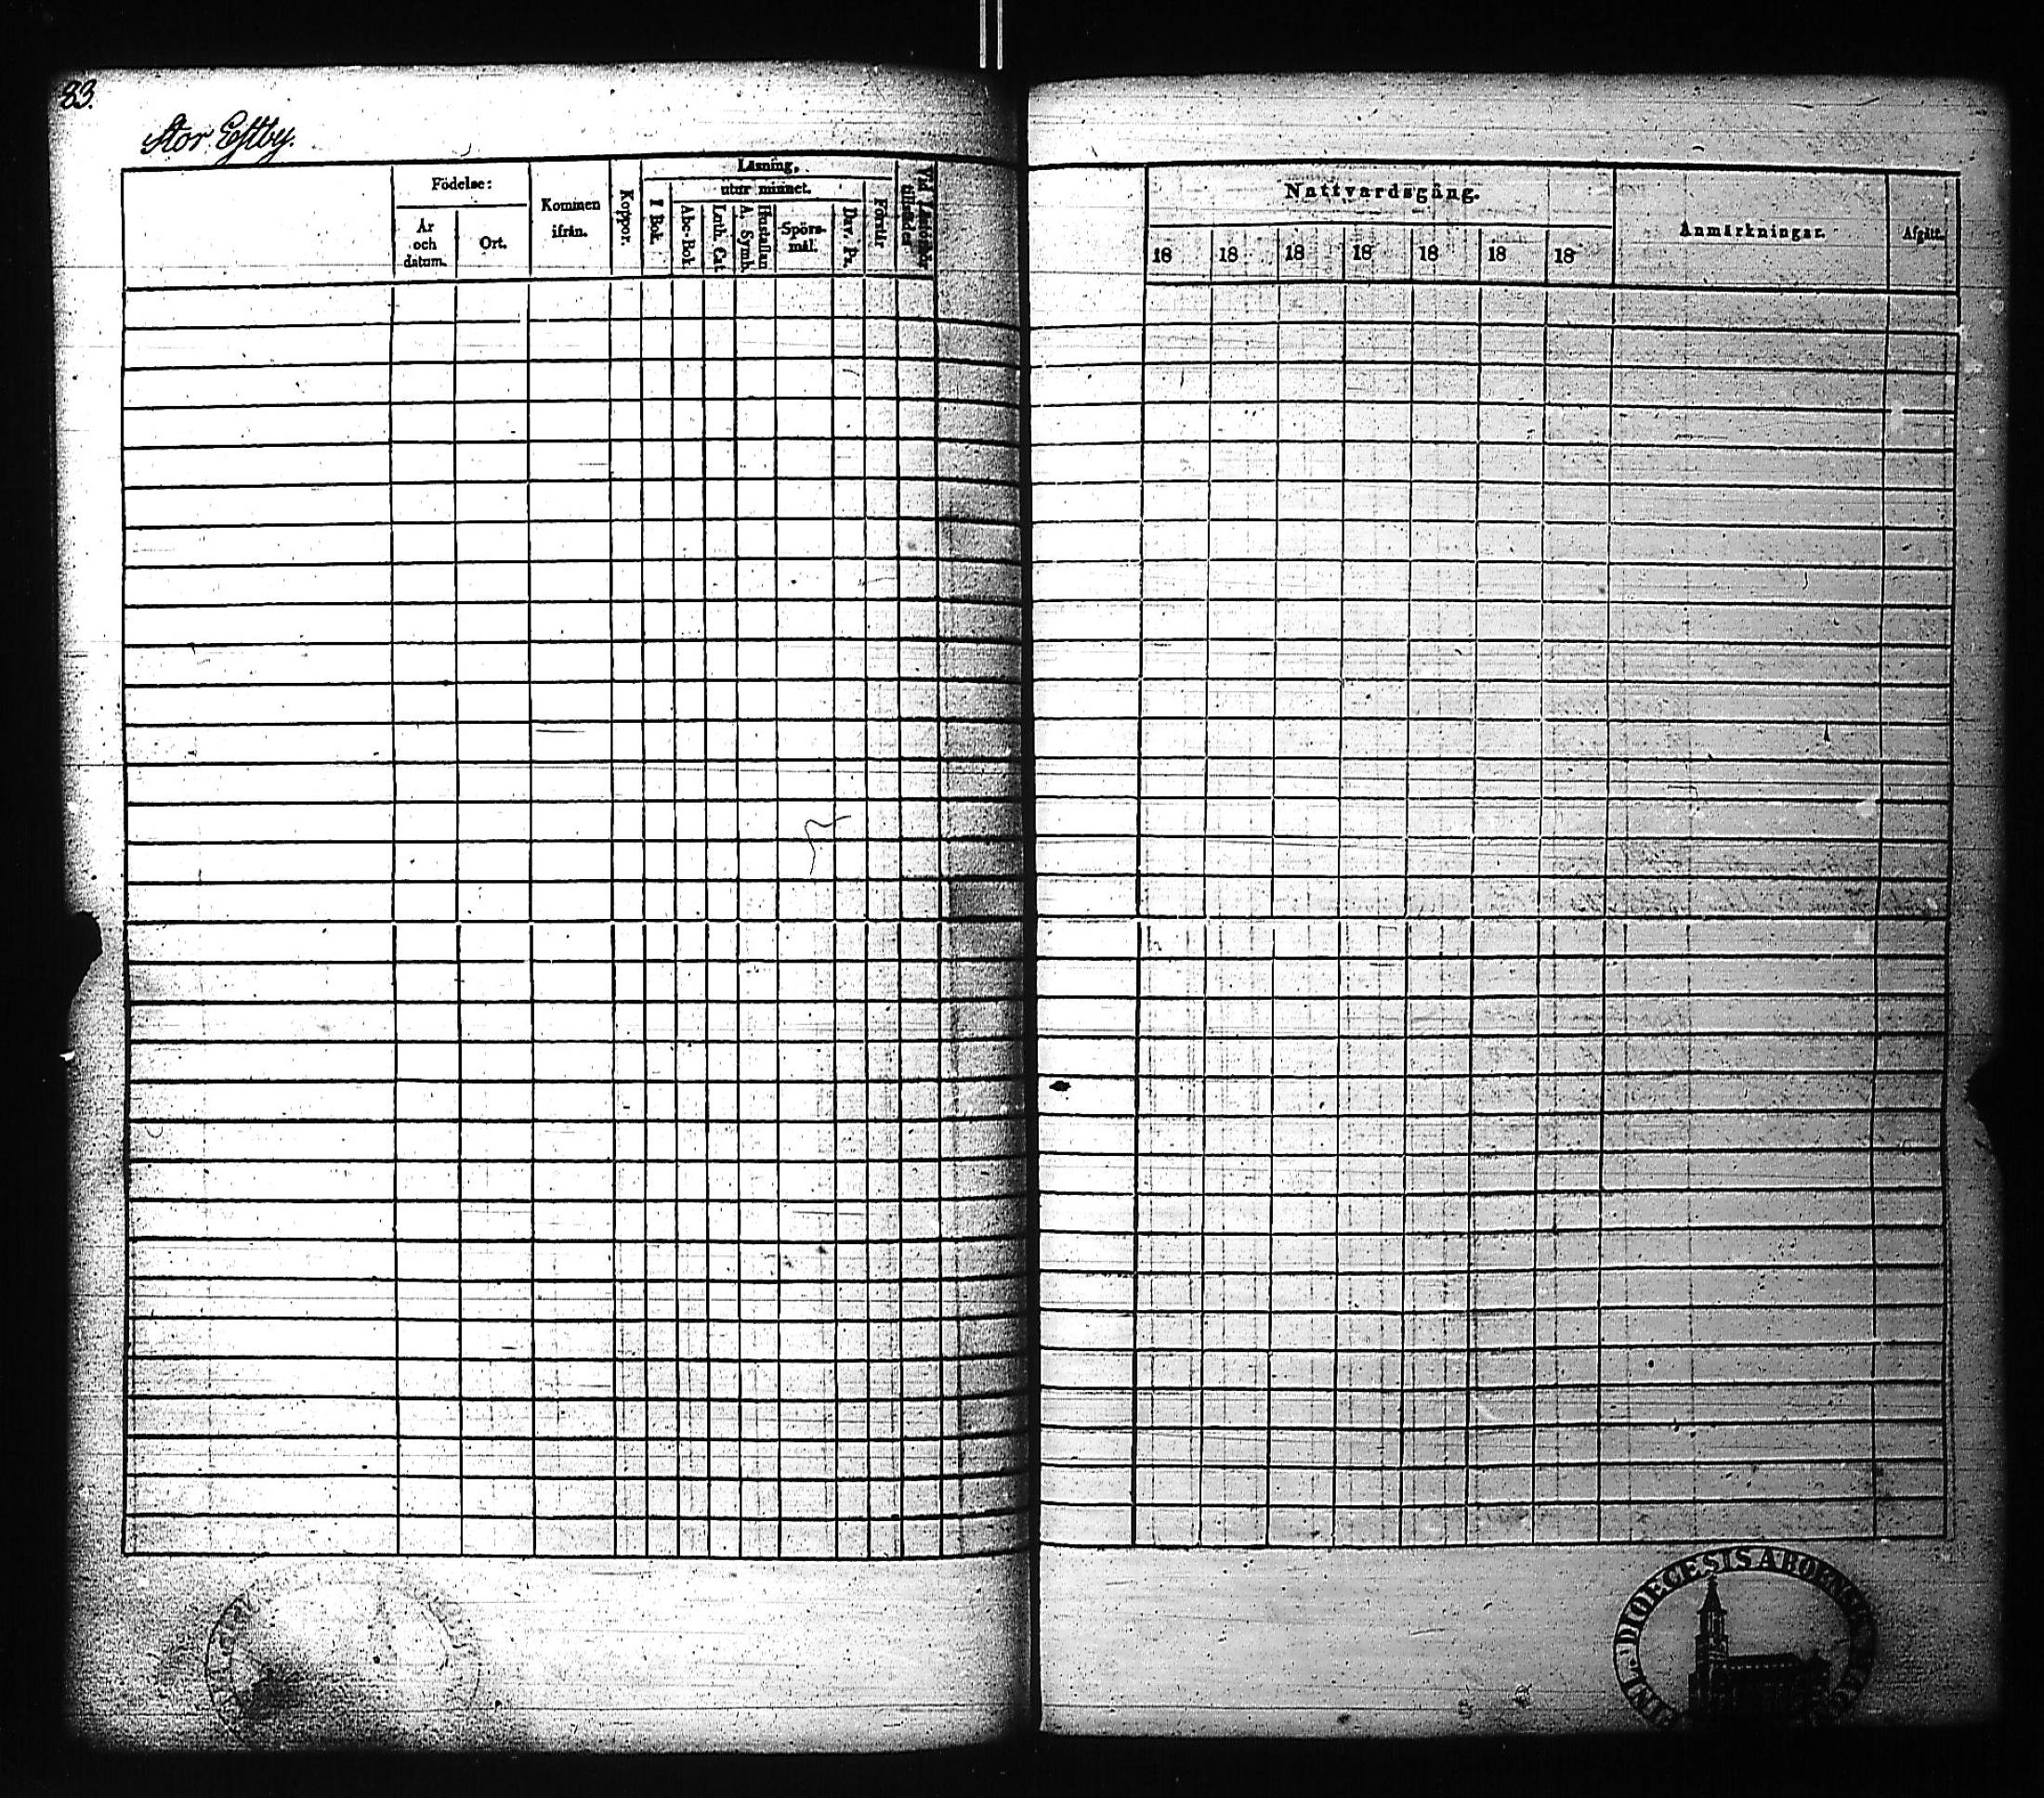 83.
Stor Estby.
Födelse:
År
och
datum.
Ort.
Kommen
ifrån.
Koppor.
Läsning,
utur minnet.
I Bok.
Abc-Bok.
Luth. Cat.
Hustaflan
A. Symb.
Spörs-
mål.
Dav. Ps.
Förstår
Vid Läsförhör
tillstädes
Nattvardsgång.
18 18 18 18 18 18 18
Anmärkningar.
Afgått.
DIOECESIS ABOENSIS